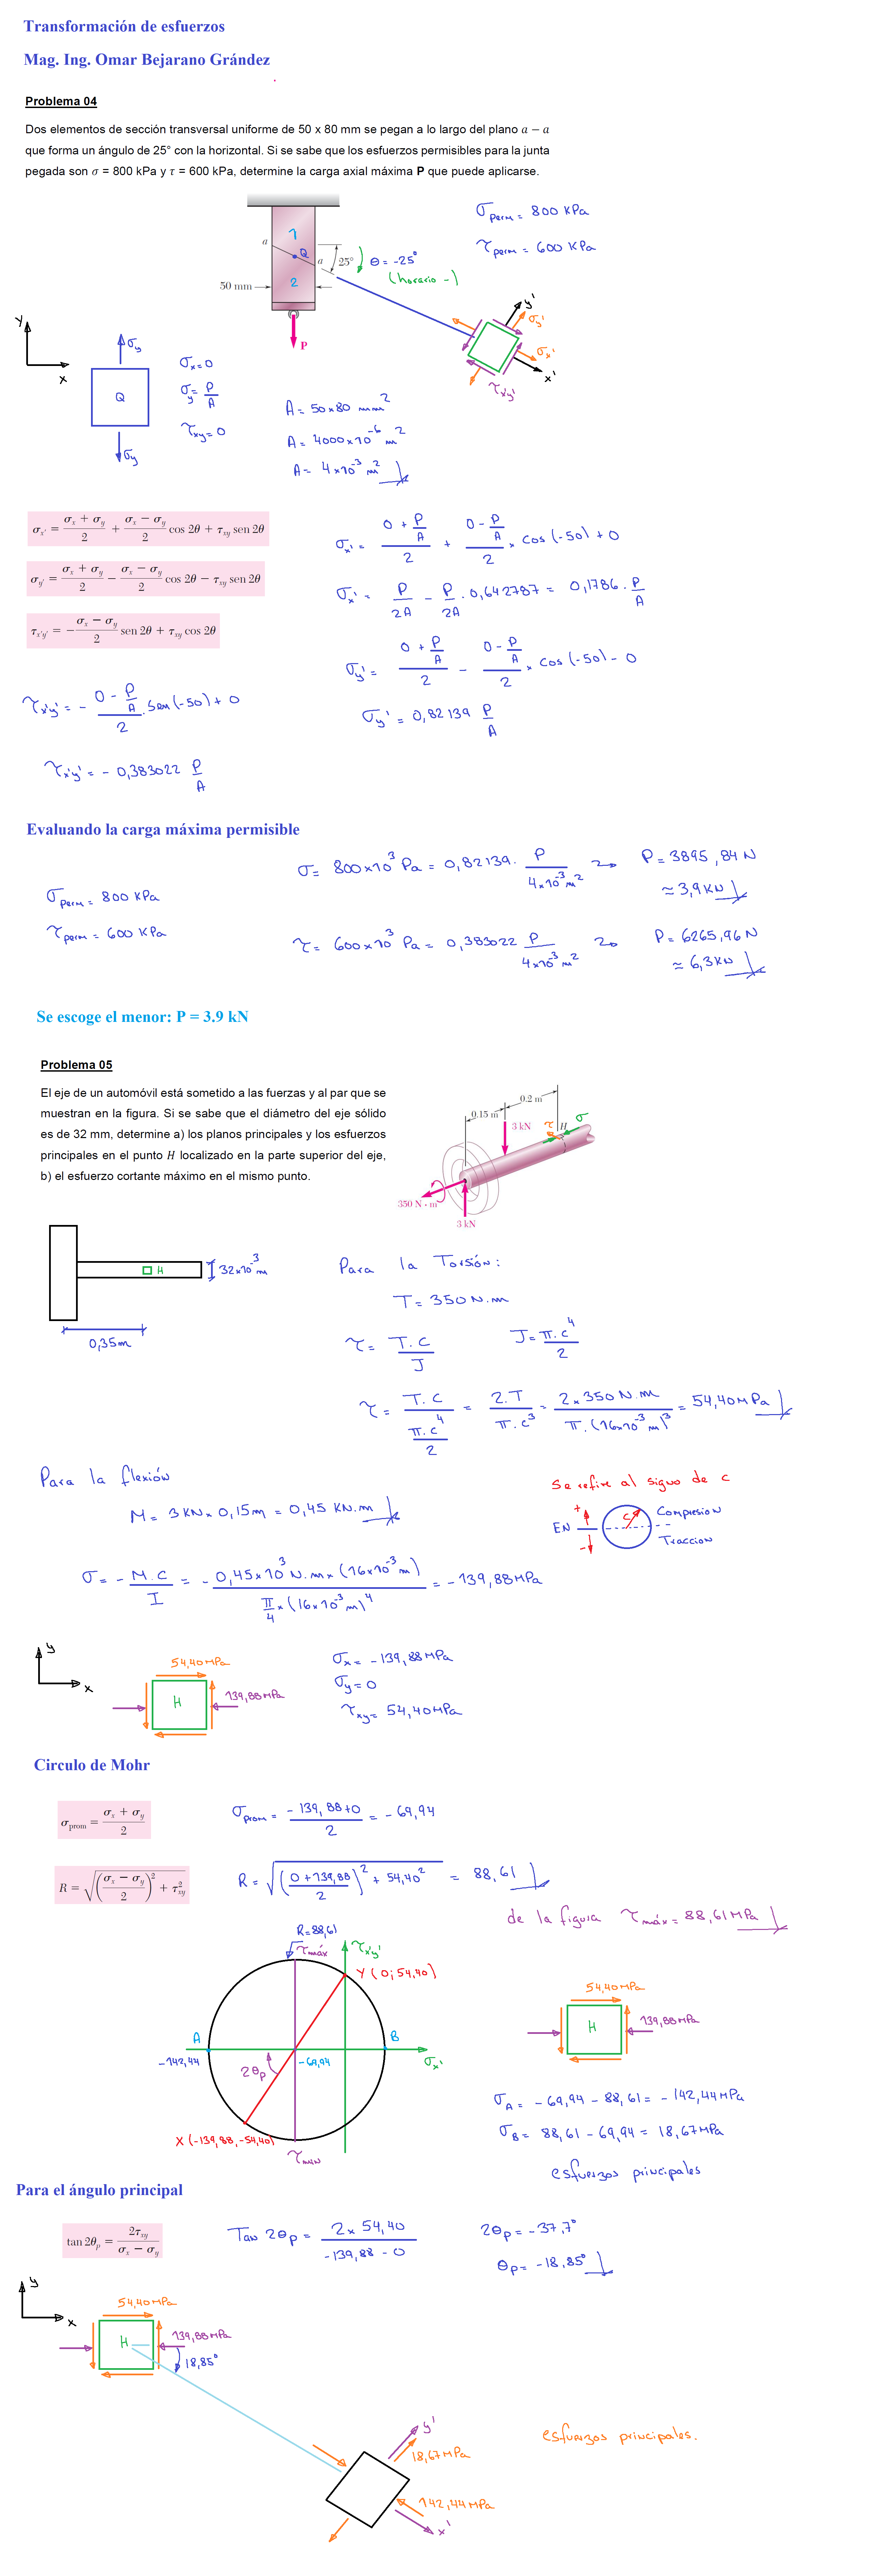 Transformación de esfuerzos
Mag. Ing. Omar Bejarano Grández
Problema 04
Dos elementos de sección transversal uniforme de 50 x 80 mm se pegan a lo largo del plano a − a
que forma un ángulo de 25° con la horizontal. Si se sabe que los esfuerzos permisibles para la junta
pegada son σ = 800 kPa y τ = 600 kPa, determine la carga axial máxima P que puede aplicarse.
σperm = 800 KPa
τperm = 600 KPa
a
1
Q
a
25°
θ = -25°
(horario -)
50 mm
2
P
y'
σy'
σx'
x'
τx'y'
y
x
σy
Q
σy
σx = 0
σy = P/A
τxy = 0
A = 50×80 mm²
A = 4000×10⁻⁶ m²
A = 4×10⁻³ m²
σx' = (σx + σy)/2 + (σx − σy)/2 cos 2θ + τxy sen 2θ
σy' = (σx + σy)/2 − (σx − σy)/2 cos 2θ − τxy sen 2θ
τx'y' = −(σx − σy)/2 sen 2θ + τxy cos 2θ
σx' = (0 + P/A)/2 + (0 - P/A)/2 × cos (-50) + 0
σx' = P/2A - P/2A · 0,642787 = 0,1786 · P/A
σy' = (0 + P/A)/2 - (0 - P/A)/2 × cos (-50) - 0
σy' = 0,82139 P/A
τx'y' = - (0 - P/A)/2 · Sen (-50) + 0
τx'y' = - 0,383022 P/A
Evaluando la carga máxima permisible
σperm = 800 KPa
τperm = 600 KPa
σ = 800×10³ Pa = 0,82139 · P/(4×10⁻³ m²) → P = 3895,84 N
≈ 3,9 KN
τ = 600×10³ Pa = 0,383022 P/(4×10⁻³ m²) → P = 6265,96 N
≈ 6,3 KN
Se escoge el menor: P = 3.9 kN
Problema 05
El eje de un automóvil está sometido a las fuerzas y al par que se
muestran en la figura. Si se sabe que el diámetro del eje sólido
es de 32 mm, determine a) los planos principales y los esfuerzos
principales en el punto H localizado en la parte superior del eje,
b) el esfuerzo cortante máximo en el mismo punto.
0.2 m
0.15 m
3 kN
τ
H
σ
350 N • m
3 kN
H
32×10⁻³ m
0,35m
Para la Torsión:
T = 350 N.m
τ = T.c/J
J = π.c⁴/2
τ = T.c/(π.c⁴/2) = 2.T/π.c³ = 2×350 N.m/π.(16×10⁻³ m)³ = 54,40 MPa
Para la flexión
M = 3 KN × 0,15m = 0,45 KN.m
σ = - M.c/I = - 0,45×10³ N.m × (16×10⁻³ m)/(π/4 × (16×10⁻³ m)⁴) = -139,88 MPa
Se refire al signo de c
EN
+
-
c
Compresion
Traccion
y
x
54,40 MPa
H
139,88 MPa
σx = -139,88 MPa
σy = 0
τxy = 54,40 MPa
Circulo de Mohr
σprom = (σx + σy)/2
σprom = (-139,88+0)/2 = -69,94
R = √(((σx − σy)/2)² + τ²xy)
R = √(((0+139,88)/2)² + 54,40²) = 88,61
de la figura τmáx = 88,61 MPa
R = 88,61
τmáx
τx'y'
Y (0; 54,40)
A
-142,44
B
2θp
-69,94
σx'
X (-139,88, -54,40)
τmin
54,40 MPa
H
139,88 MPa
σA = -69,94 - 88,61 = -142,44 MPa
σB = 88,61 - 69,94 = 18,67 MPa
esfuerzos principales
Para el ángulo principal
tan 2θp = 2τxy/(σx − σy)
Tan 2θp = 2×54,40/(-139,88 - 0)
2θp = -37,7°
θp = -18,85°
y
x
54,40 MPa
H
139,88 MPa
18,85°
y'
18,67 MPa
142,44 MPa
x'
esfuerzos principales.